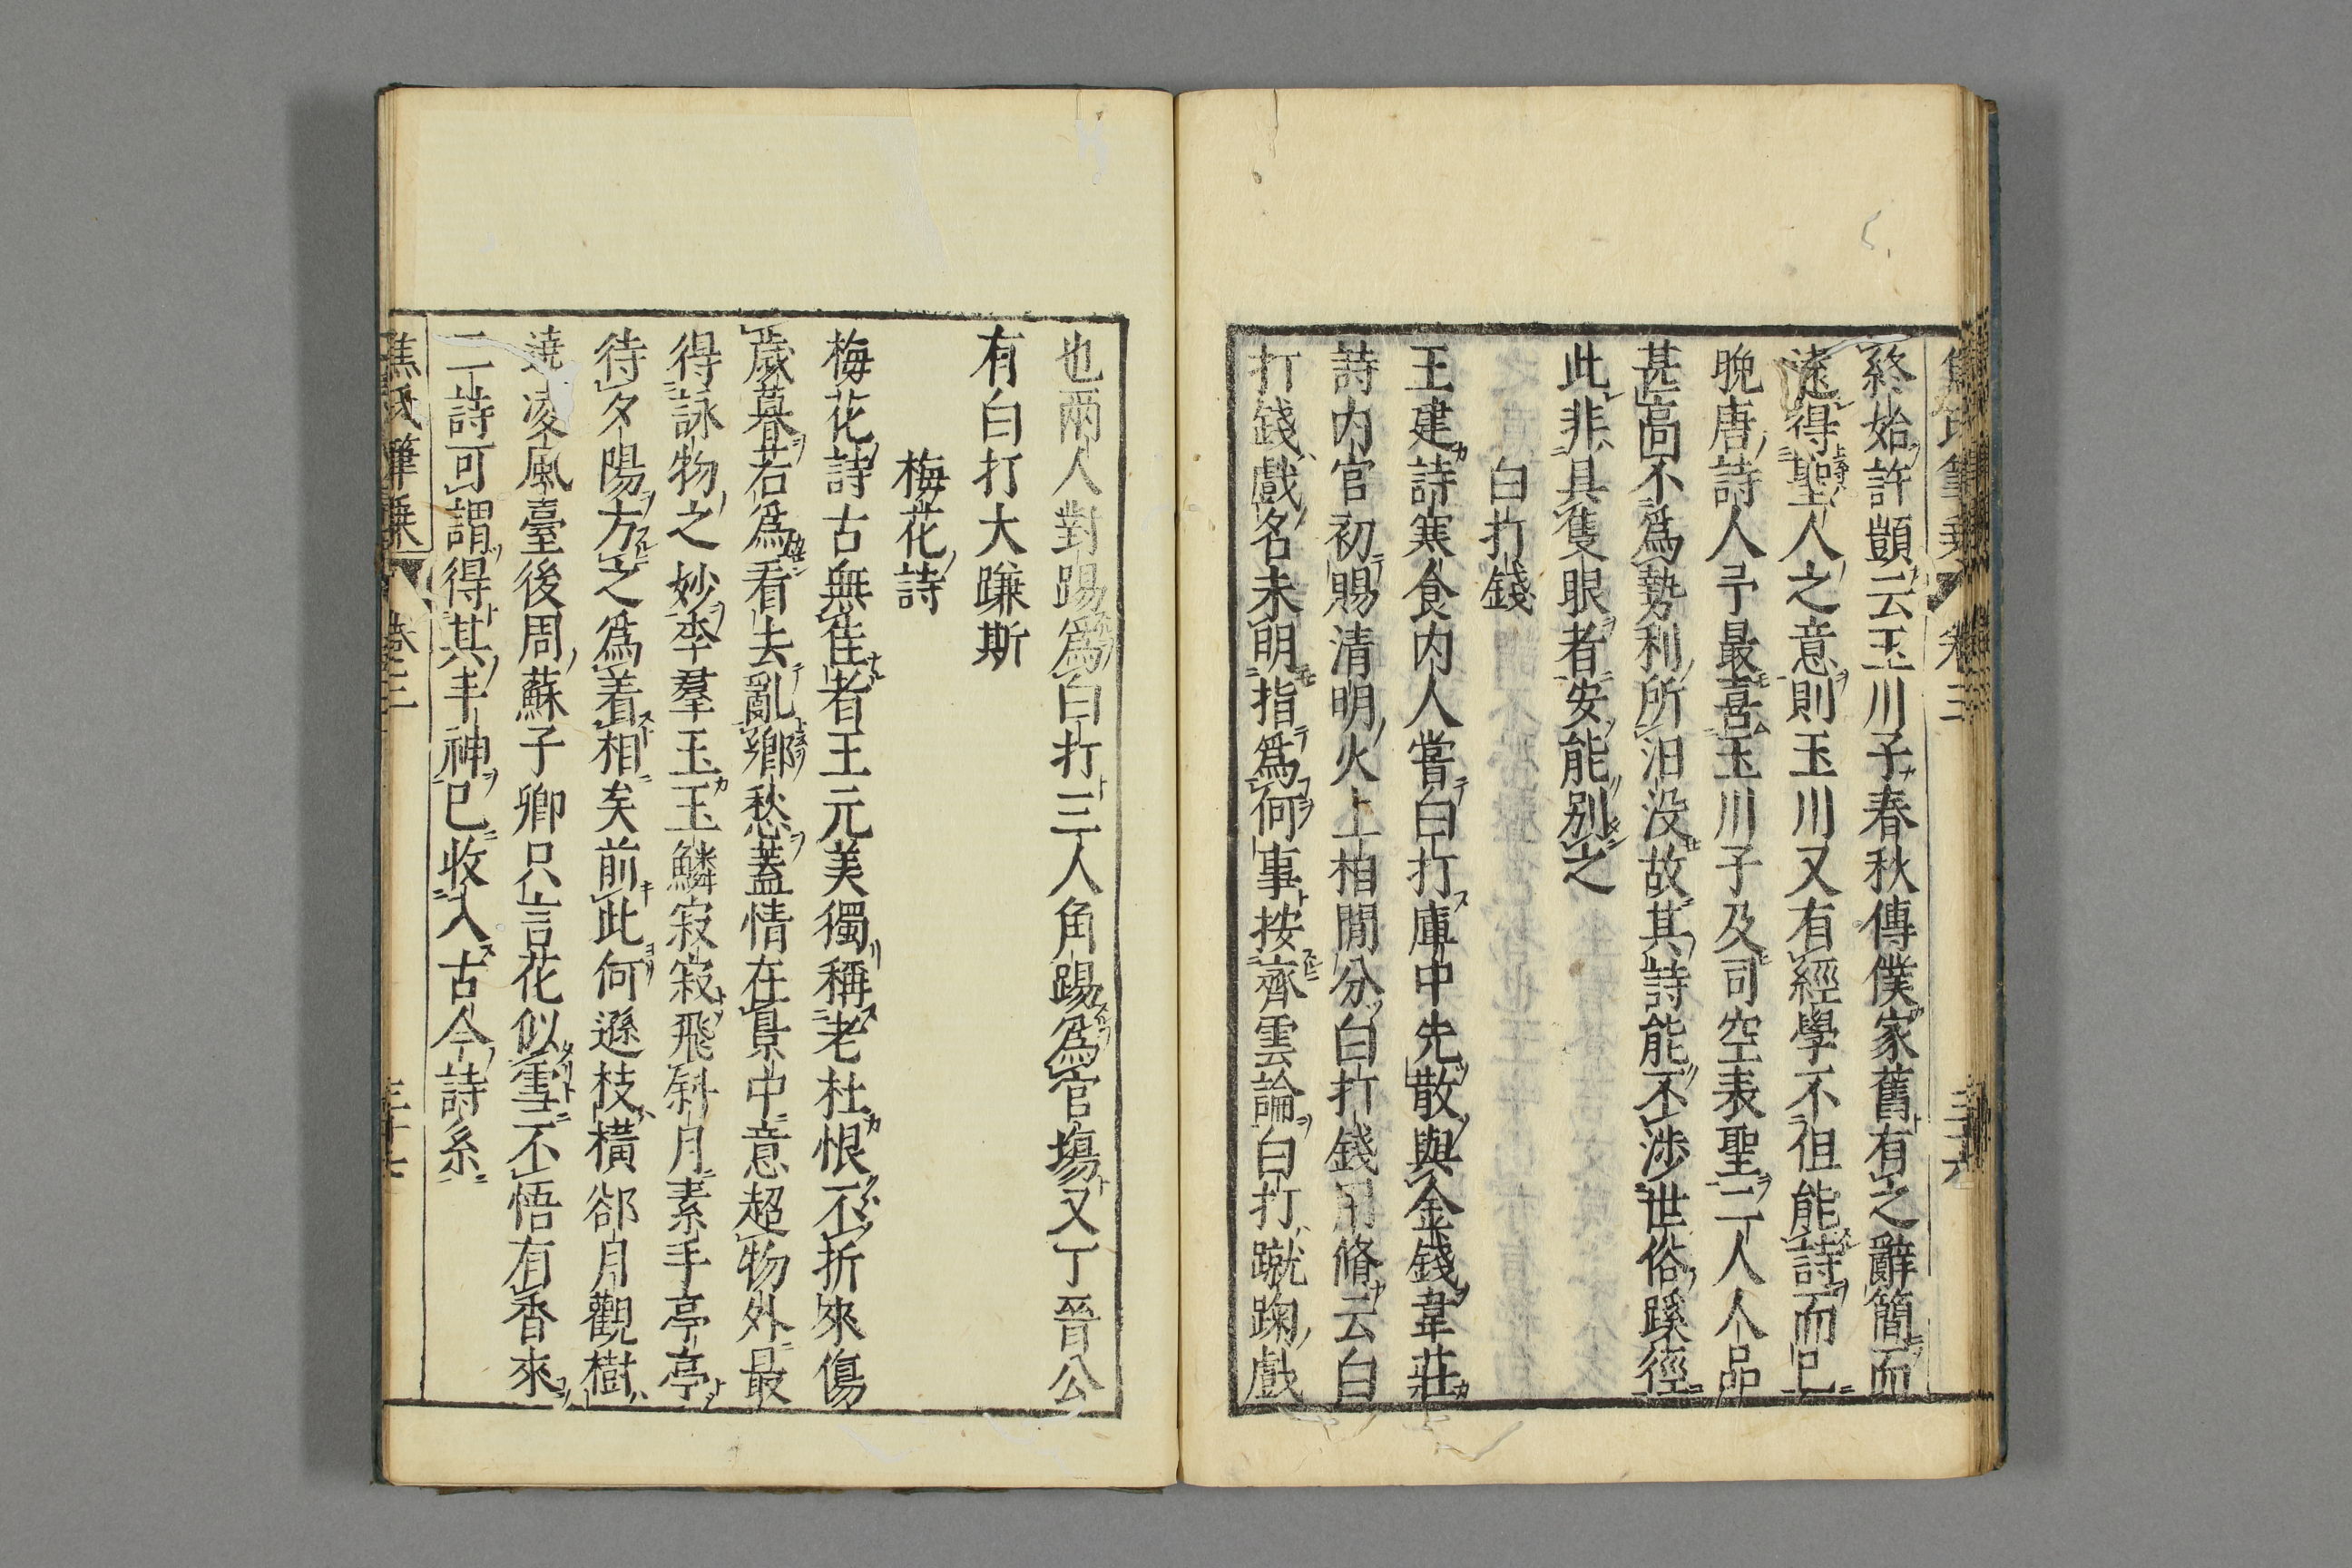 終始許顗云玉川子春秋傳僕家舊有之辭簡而
遠得聖人之意則玉川又有經學不徂能詩而已
晚唐詩人予最喜玉川子及司空表聖二人人品
甚高不爲勢利所汨没故其詩能不渉世俗蹊徑
此非具隻眼者安能别之
白打錢
王建詩寒食内人嘗白打庫中先散與金錢韋莊
詩内官初賜清明火上相閒分白打錢用脩云白
打錢戲名未明指爲何事按齊雲論白打蹴踘戲
也兩人對踢爲白打三人角踢爲官塲又丁晉公
有白打大㾾斯
梅花詩
梅花詩古無佳者王元美獨稱老杜恨不折來傷
歲暮若爲看去亂鄉愁蓋情在景中意超物外最
得詠物之妙李羣玉玉鱗寂寂飛斜月素手亭亭
待夕陽方之爲着相矣前此何遜枝橫郤月觀樹
遶凌風臺後周蘇子卿只言花似雪不悟有香來
二詩可謂得其丰神已收入古今詩系
焦氏筆乘 卷三 三十七